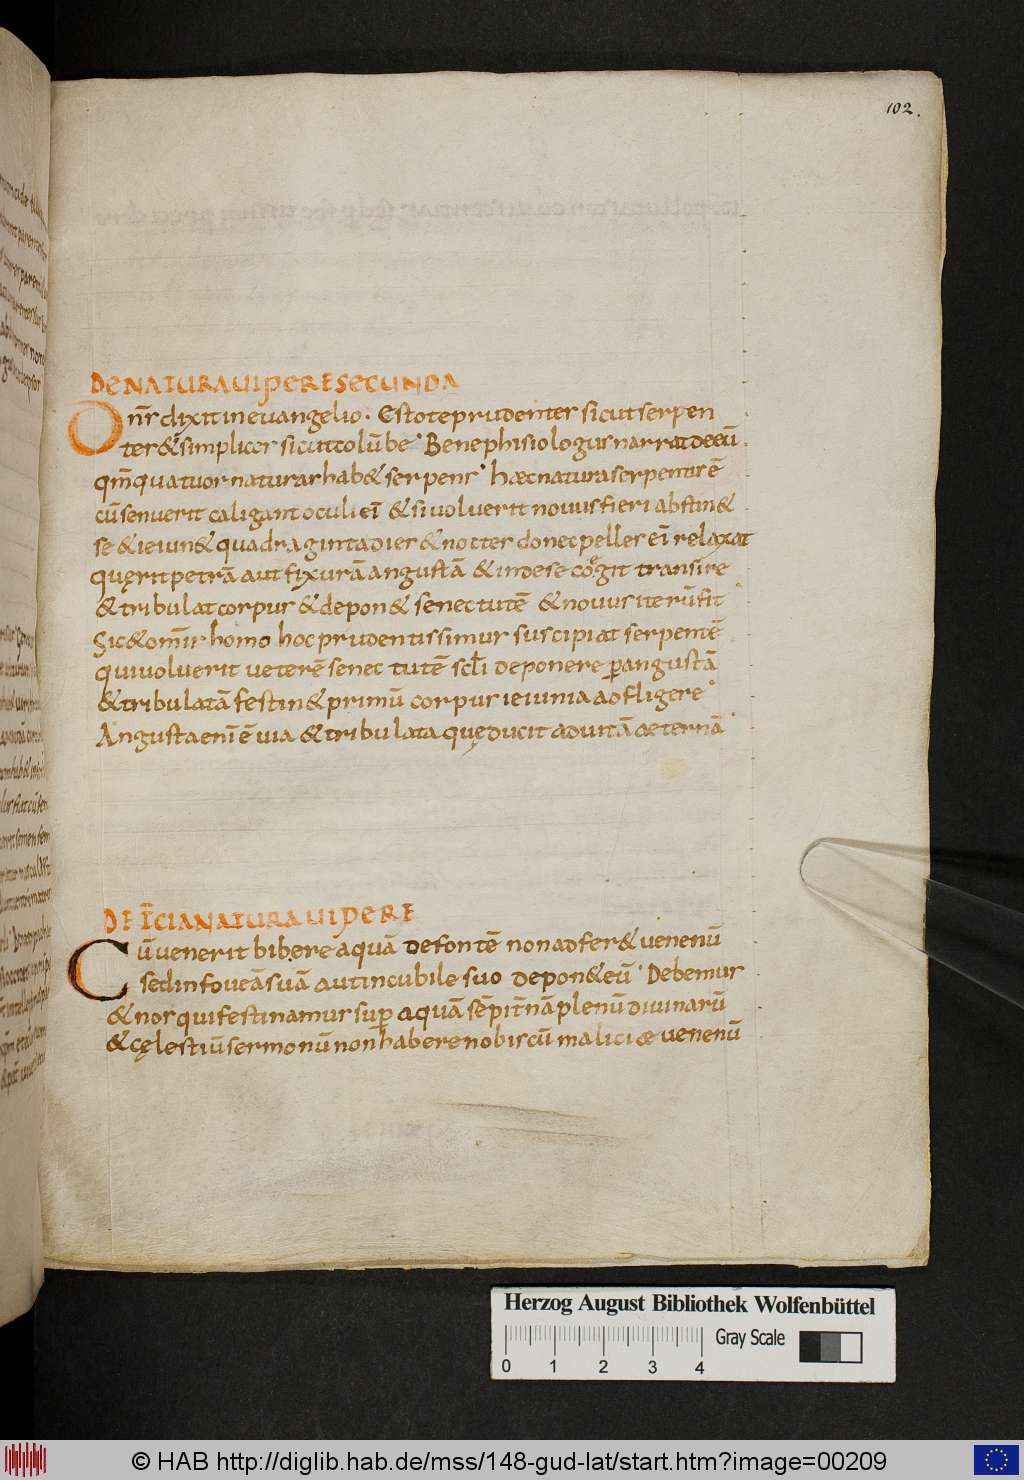 102.
DE NATURA UIPERE SECUNDA
Dn̄s dixit in euangelio. Estote prudentes sicut serpen
tes & simplices sicut colūbe. Bene phisiologus narrat de eū
qm̄ quatuor naturas hab& serpens. haec natura serpentis ē
cū senuerit caligant oculi eī & si uoluerit nouus fieri abstin&
se & ieiun& quadraginta dies & noctes donec pelles eī relaxat
quęrit petrā aut fixurā angustā & inde se cogit transire
& tribulat corpus & depon& senectutē & nouus iterū fit
Sic & om̄is homo hoc prudentissimus suscipiat serpentē
qui uoluerit ueterē senectutē scl̄i deponere p angustā
& tribulatā festin& primū corpus ieiunia adfligere
Angusta enī ē uia & tribulata quę ducit ad uitā aeternā
DE T̄CIA NATURA UIPERE
Cū uenerit bibere aquā de fontē non adfer& uenenū
sed in foueā suā aut in cubile suo depon& eū. Debemus
& nos qui festinamus sup aquā sēpit̄nā plenū diuinarū
& cęlestiū sermonū non habere nobiscū maliciae uenenū
Herzog August Bibliothek Wolfenbüttel
0 1 2 3 4
Gray Scale
© HAB http://diglib.hab.de/mss/148-gud-lat/start.htm?image=00209